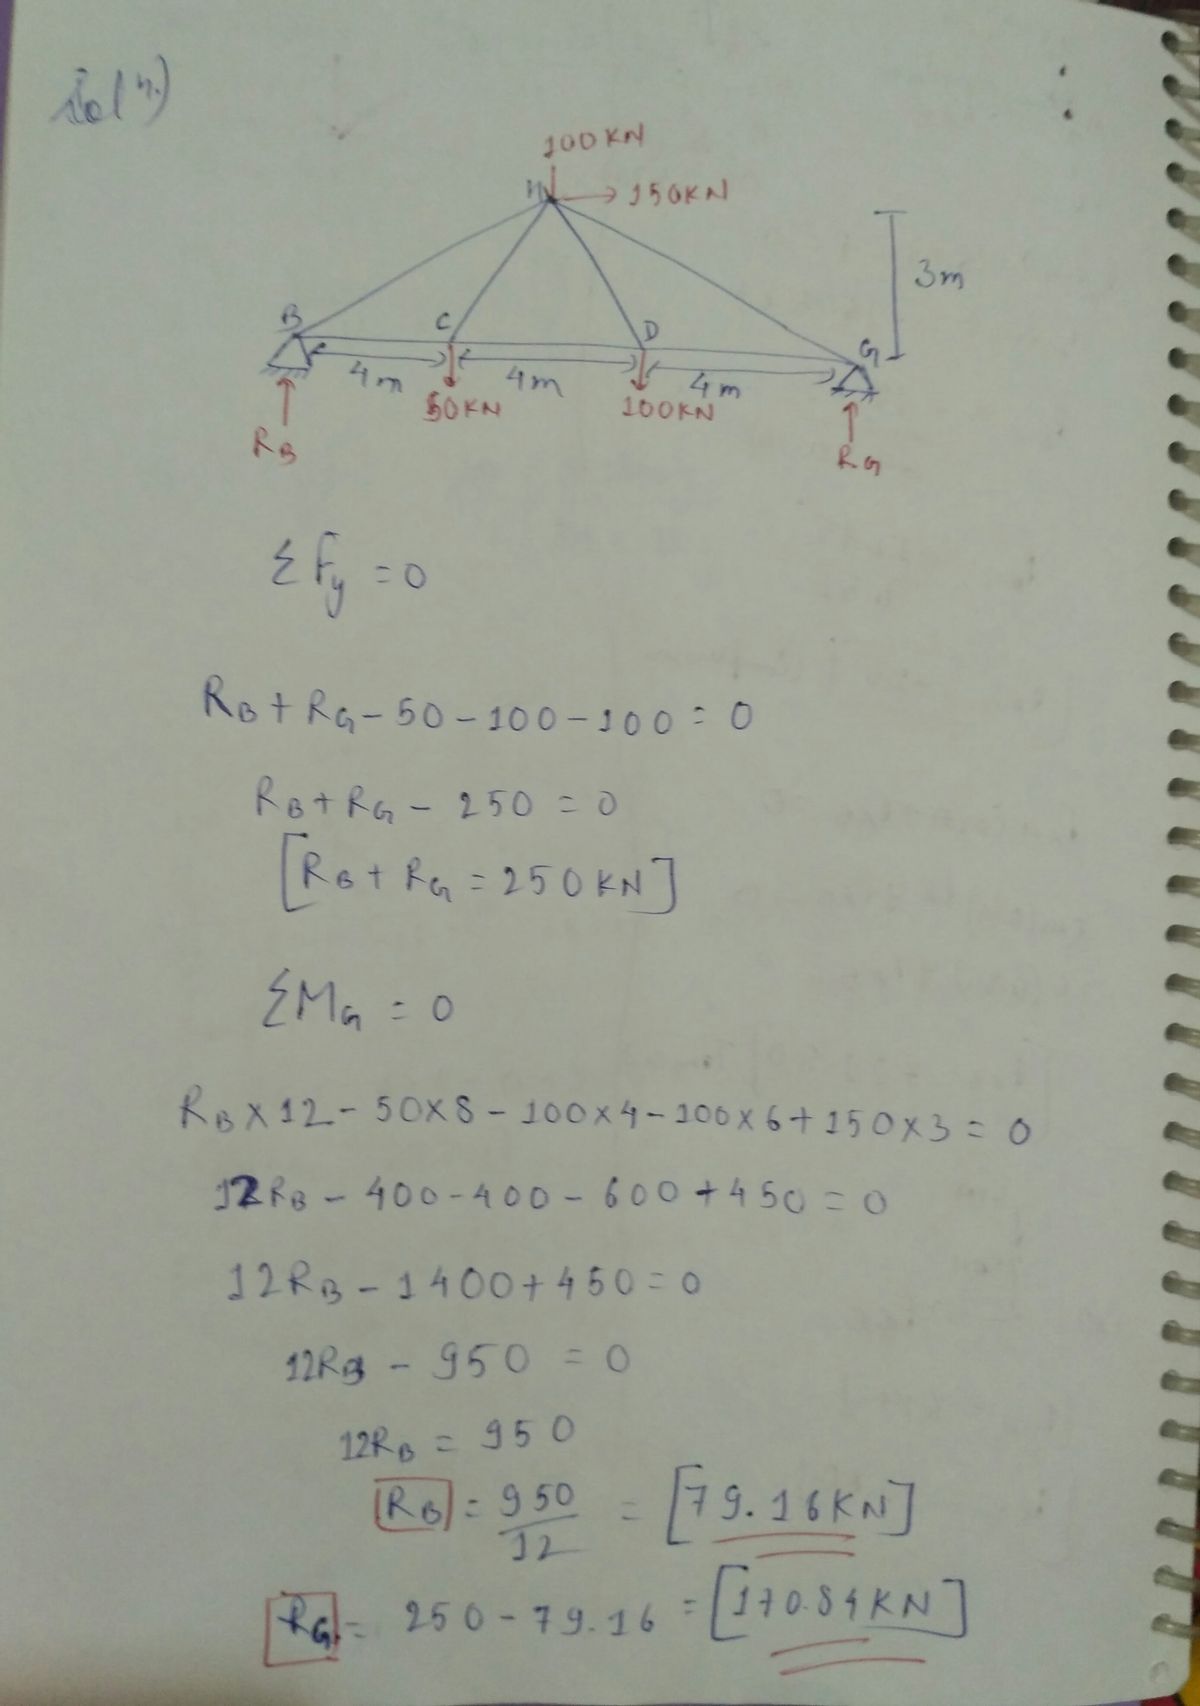 Solⁿ.)
100KN
H
150KN
3m
B
C
D
G
4m
4m
4m
50KN
100KN
RB
RG
ΣFy = 0
RB + RG - 50 - 100 - 100 = 0
RB + RG - 250 = 0
[RB + RG = 250KN]
ΣMG = 0
RB × 12 - 50×8 - 100×4 - 100×6 + 150×3 = 0
12RB - 400 - 400 - 600 + 450 = 0
12RB - 1400 + 450 = 0
12RB - 950 = 0
12RB = 950
RB = 950/12 = [79.16KN]
RG = 250 - 79.16 = [170.84KN]